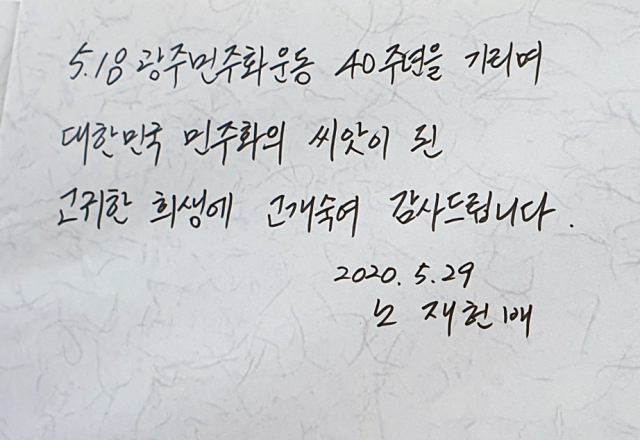 5.18 광주민주화운동 40주년을 기리며
대한민국 민주화의 씨앗이 된
고귀한 희생에 고개숙여 감사드립니다.
2020. 5. 29
노 재헌 배